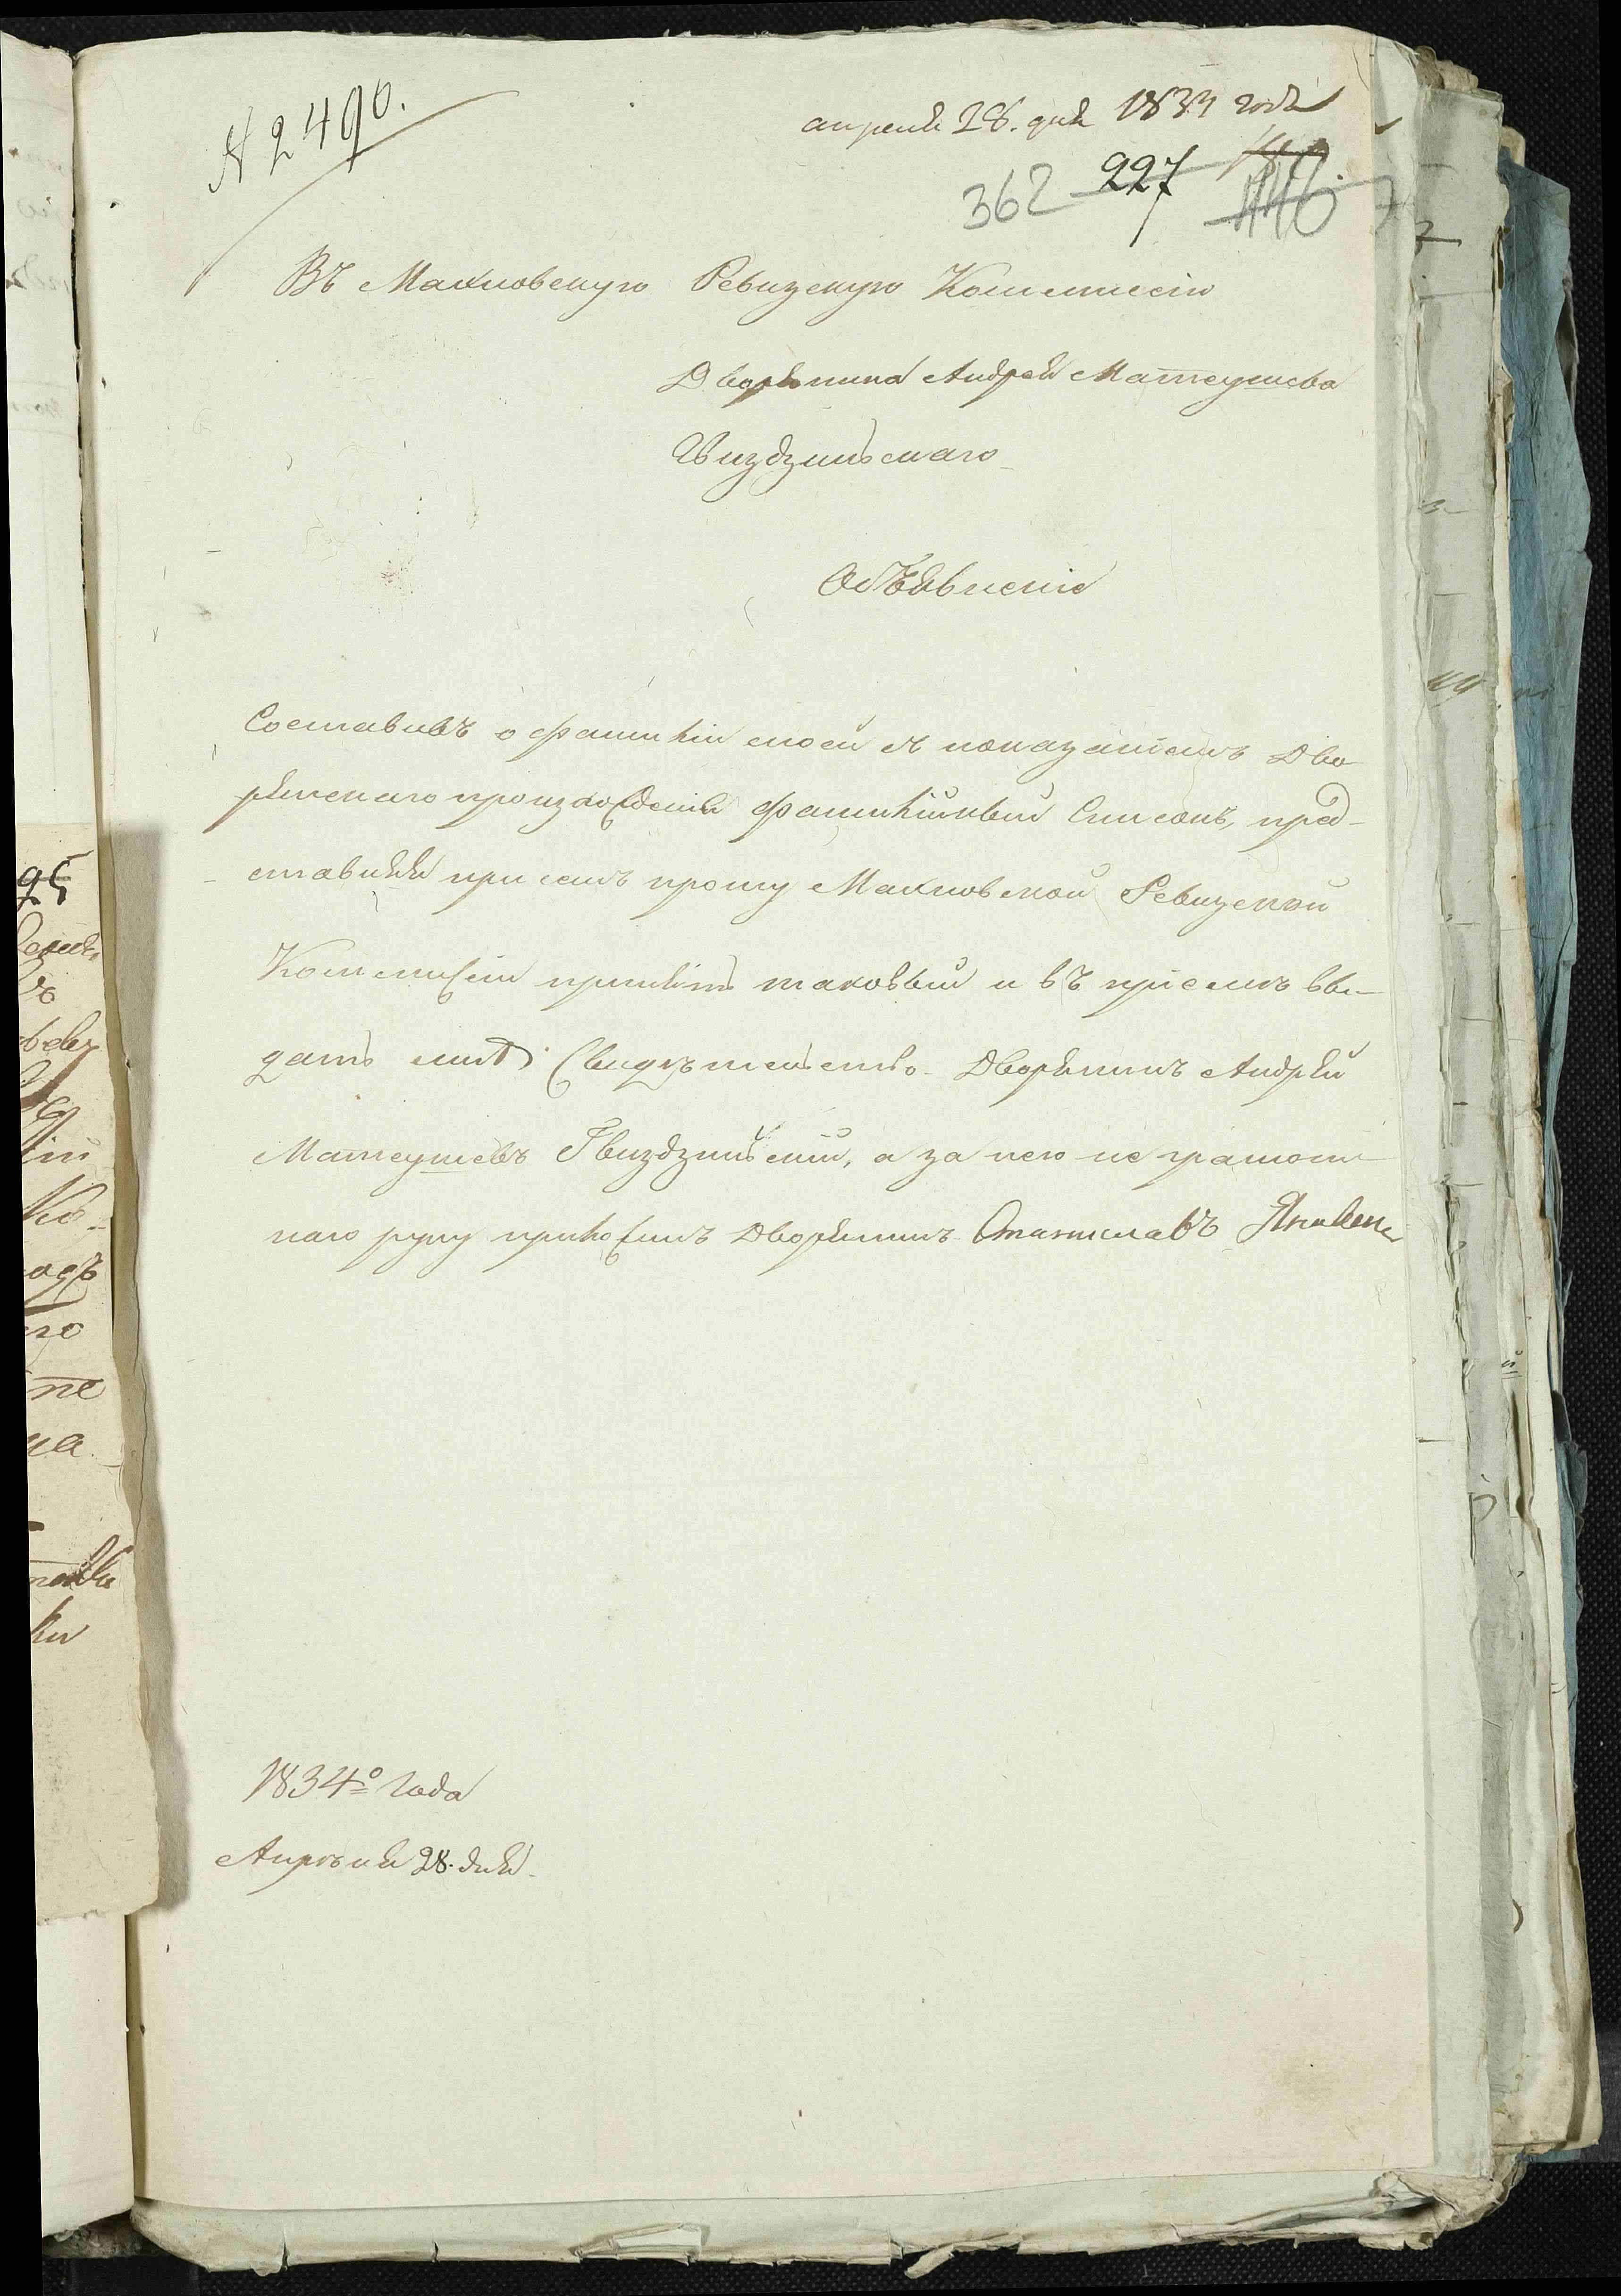 N 2490.
апреля 28. дня 1834 года
362 227
Въ Махновскую Ревизскую Коммиссію
Дворянина Андрея Матеушева
Гвиздзинскаго
Объявленіе
Составивъ о фамиліи моей съ показаніемъ Дво-
рянскаго произхожденія фамилійный Списокъ, пред-
ставляя при семъ прошу Махновской Ревизской
Коммисіи принять таковый и въ пріемъ вы-
дать мнѣ Свидѣтельство. Дворянинъ Андрей
Матеушевъ Гвиздзинскій, а за него не грамот-
наго руку приложилъ Дворянинъ Станиславъ
1834º года
Апрѣля 28. дня